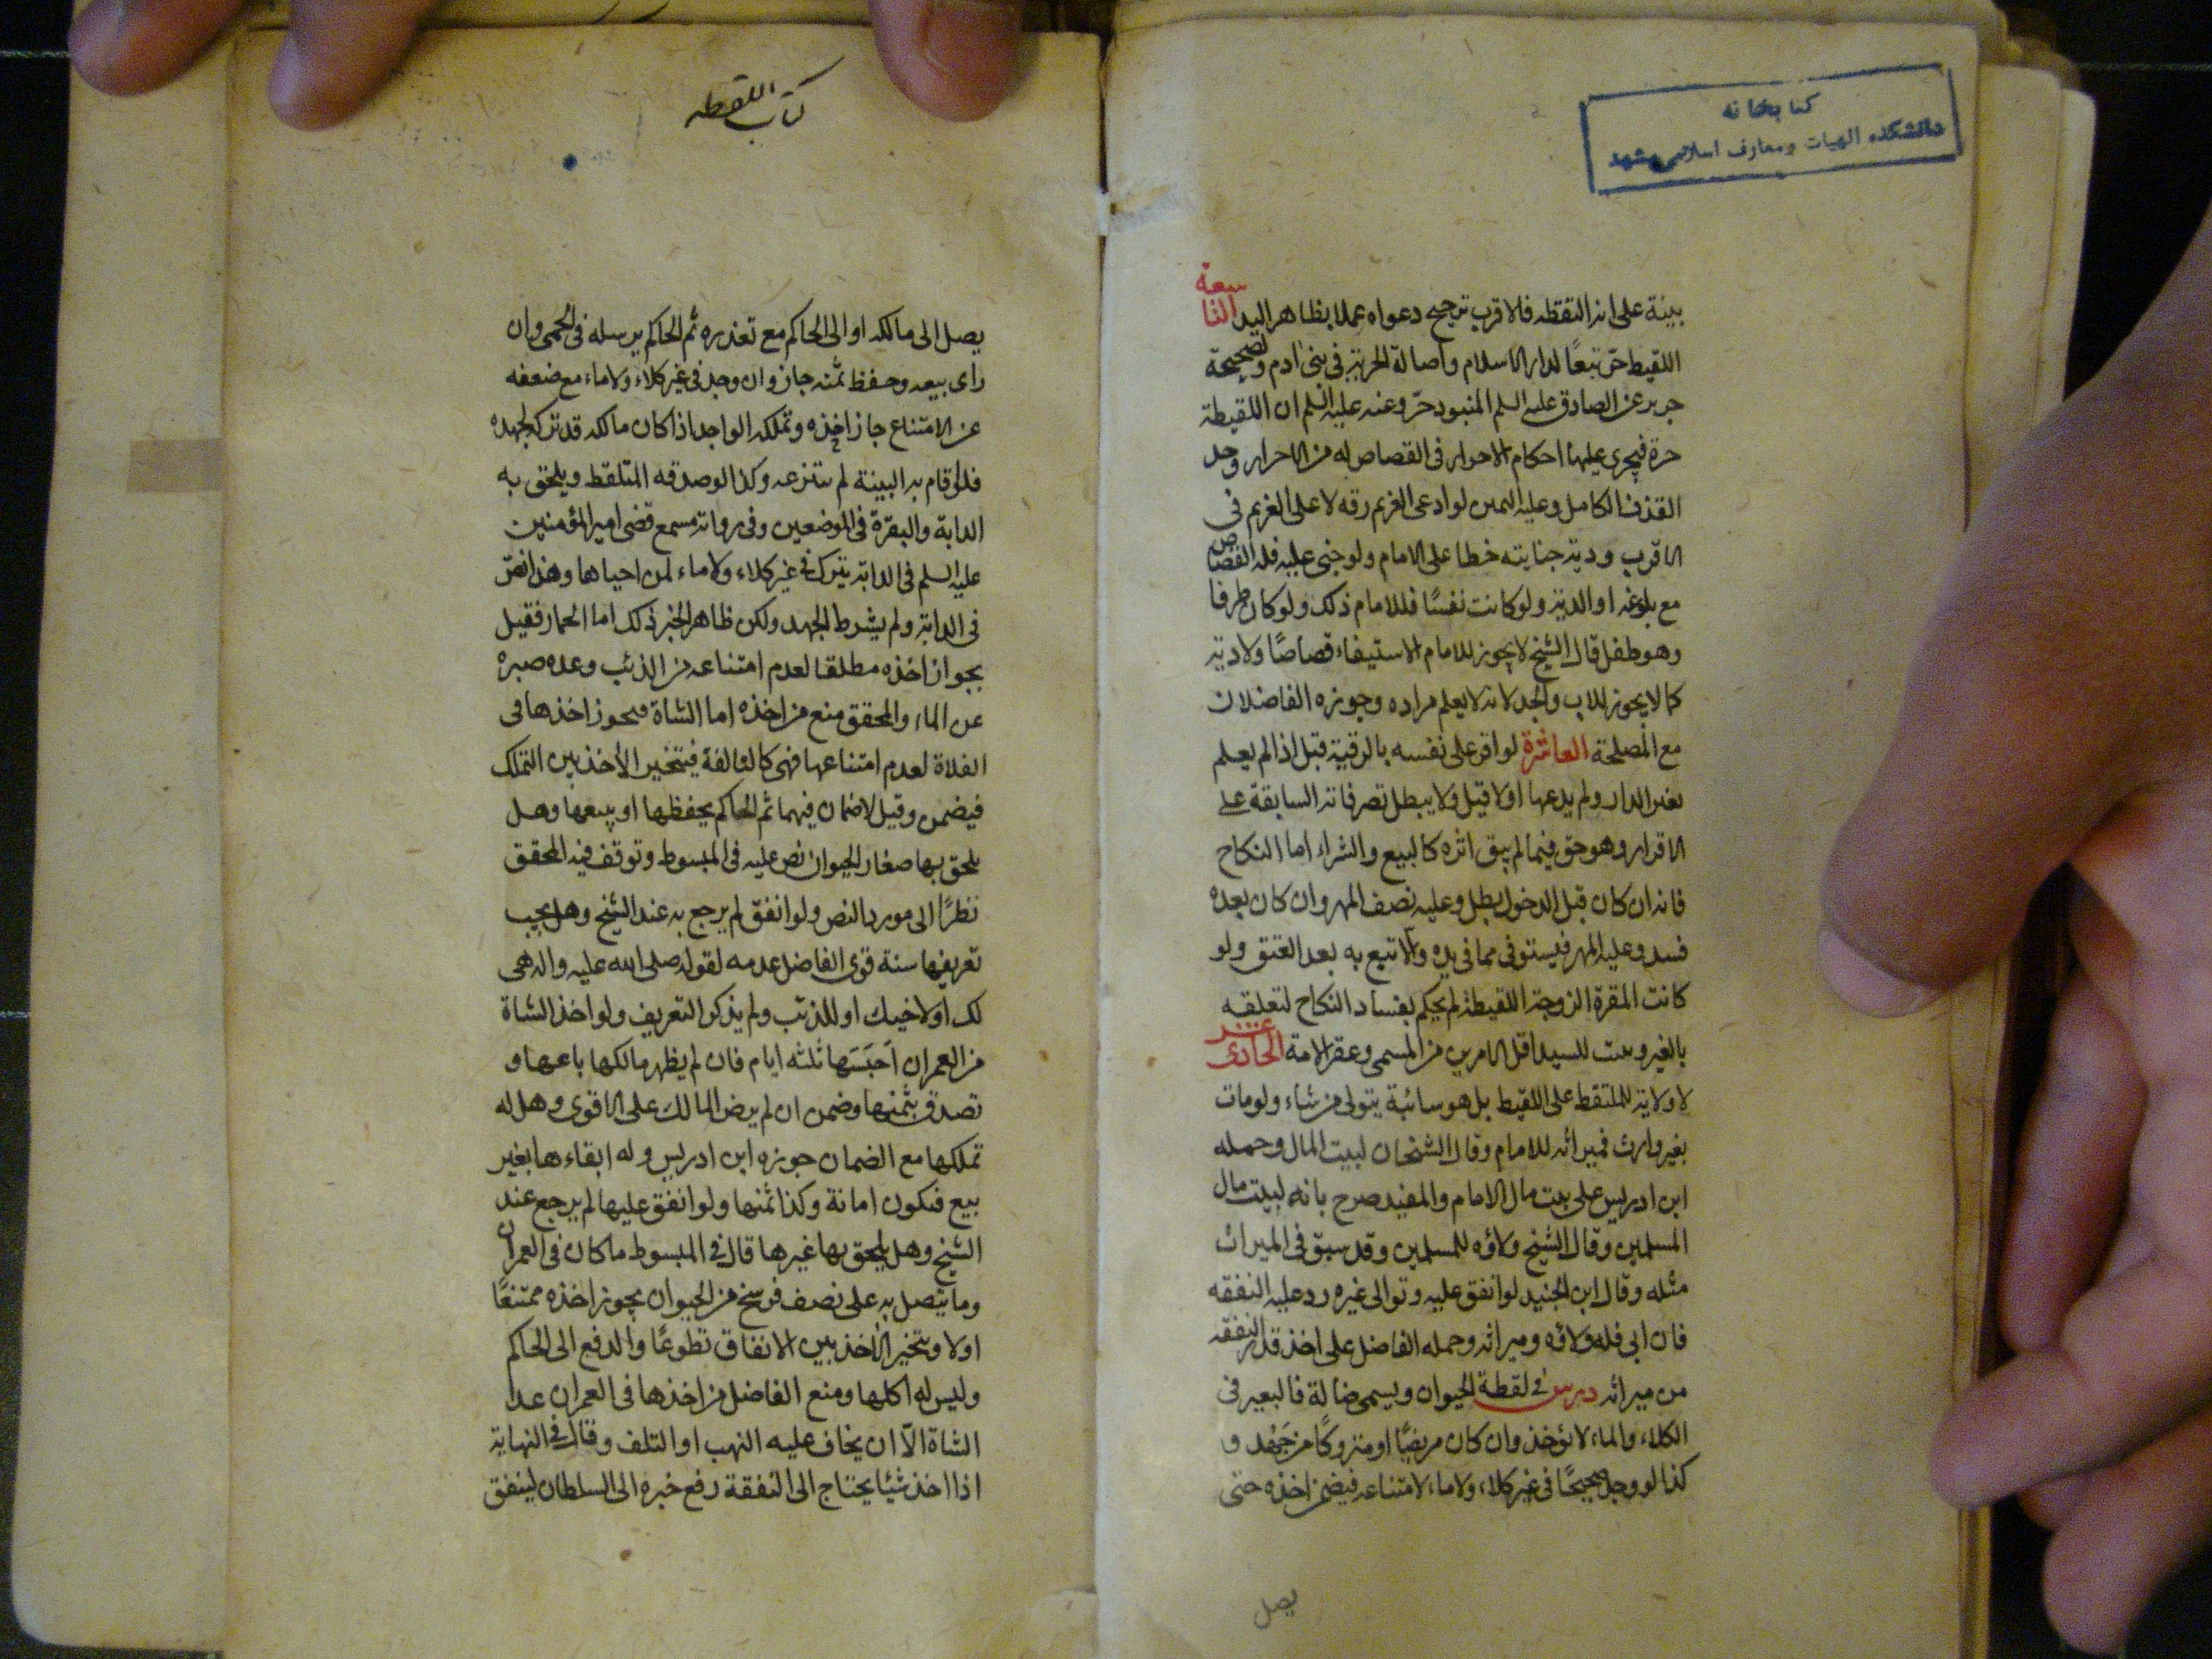 كتابخانه
دانشکده الهیات ومعارف اسلامی مشهد
بينة على انه التقطه فالاقرب ترجيح دعواه عملا بظاهر اليد التاسعة
اللقيط حرّ تبعًا لدار الاسلام واصالة الحرية فى بنى ادم ولصحيحة
حريز عن الصادق عليه السلم المنبود حرّ وعنه عليه السلم ان اللقيطة
حرة فيجرى عليها احكام الاحرار فى القصاص له من الاحرار وحد
القذف الكامل وعليه اليمين لو ادعى الغريم رقه لا على الغريم فى
الاقرب ودية جنايته خطا على الامام ولو جنى عليه فله القصاص
مع بلوغه او الدية ولو كانت نفسًا فللامام ذلك ولو كان طرفا
وهو طفل قال الشيخ لا يجوز للامام الاستيفاء قصاصًا ولا دية
كما لا يجوز للاب والجد لانه لا يعلم مراده وجوزه الفاضلان
مع المصلحة العاشرة لو اقر على نفسه بالرقية قبل اذا لم يعلم
بغير الدار ولم يدعها اولا قيل ولا يبطل تصرفاته السابقة على
الاقرار وهو حق فيما لم يبق اثره كالبيع والشراء اما النكاح
فانه ان كان قبل الدخول بطل وعليه نصف المهر وان كان بعده
فسد وعليه المهر فيستوفى مما فى يده والا تتبع به بعد العتق ولو
كانت المقرة الزوجة اللقيطة لم يحكم بفساد النكاح لتعلقه
بالغير ويثبت للسيد اقل الامرين من المسمى وعقر الامة الحادى عشر
لا ولاية للملتقط على اللقيط بل هو سائبة يتولى من شاء ولو مات
بغير وارث فميراثه للامام وقال الشيخان لبيت المال وحمله
ابن ادريس على بيت مال الامام والمفيد صرح بانه لبيت مال
المسلمين وقال الشيخ ولاؤه للمسلمين وقد سبق فى الميراث
مثله وقال ابن الجنيد لو انفق عليه وتوالى غيره رد عليه النفقه
فان ابى فله ولاؤه وميراثه وحمله الفاضل على اخذ قدر النفقة
من ميراثه درس فى لقطة الحيوان ويسمى ضالة فالبعير فى
الكلاء والماء لا يؤخذ وان كان مريضًا او متروكًا من جَهْد و
كذا لو وجد صحيحًا فى غير كلاء ولا ماء لامتناعه فيضمن اخذه حتى
يصل
كتاب اللقطه
يصل الى مالكه او الى الحاكم مع تعذره ثم الحاكم يرسله فى الحمى وان
راى بيعه وحفظ ثمنه جاز وان وجد فى غير كلاء ولا ماء مع ضعفه
عن الامتناع جاز اخذه وتملكه الواجد اذا كان مالكه قد تركه لجهده
فلو اقام به البينة لم ينتزعه وكذا لو صدقه الملتقط ويلحق به
الدابة والبقرة فى الموضعين وفى رواية مسمع قضى امير المؤمنين
عليه السلم فى الدابة يترك فى غير كلاء ولا ماء لمن احياها وهذا نصّ
فى الدابة ولم يشرط الجهد ولكن ظاهر الخبر ذلك اما الحمار فقيل
بجواز اخذه مطلقا لعدم امتناعه من الذئب وعدم صبره
عن الماء والمحقق منع من اخذه اما الشاة فيجوز اخذها فى
الفلاة لعدم امتناعها فهى كالتالفة فيتخير الآخذ بين التملك
فيضمن وقيل لا ضمان فيهما ثم الحاكم يحفظها او يبيعها وهل
يلحق بها صغار الحيوان نص عليه فى المبسوط وتوقف فيه المحقق
نظرًا الى مورد النص ولو انفق لم يرجع به عند الشيخ وهل يجب
تعريفها سنة قوى الفاضل عدمه لقوله صلى الله عليه واله هى
لك او لاخيك او للذئب ولم يذكر التعريف ولو اخذ الشاة
من العمران احَبَسَها ثلثه ايام فان لم يظهر مالكها باعها و
تصدق بثمنها وضمن ان لم يرض المالك على الاقوى وهل له
تملكها مع الضمان جوزه ابن ادريس وله ابقاءها بغير
بيع فتكون امانة وكذا ثمنها ولو انفق عليها لم يرجع عند
الشيخ وهل يلحق بها غيرها قال فى المبسوط ما كان فى العمران
وما يتصل به على نصف فرسخ من الحيوان يجوز اخذه ممتنعًا
اولا ويتخير الآخذ بين الانفاق تطوعًا والدفع الى الحاكم
وليس له اكلها ومنع الفاضل من اخذها فى العمران عدا
الشاة الّا ان يخاف عليه النهب او التلف وقال فى النهاية
اذا اخذ شيئا يحتاج الى النفقة رفع خبره الى السلطان لينفق